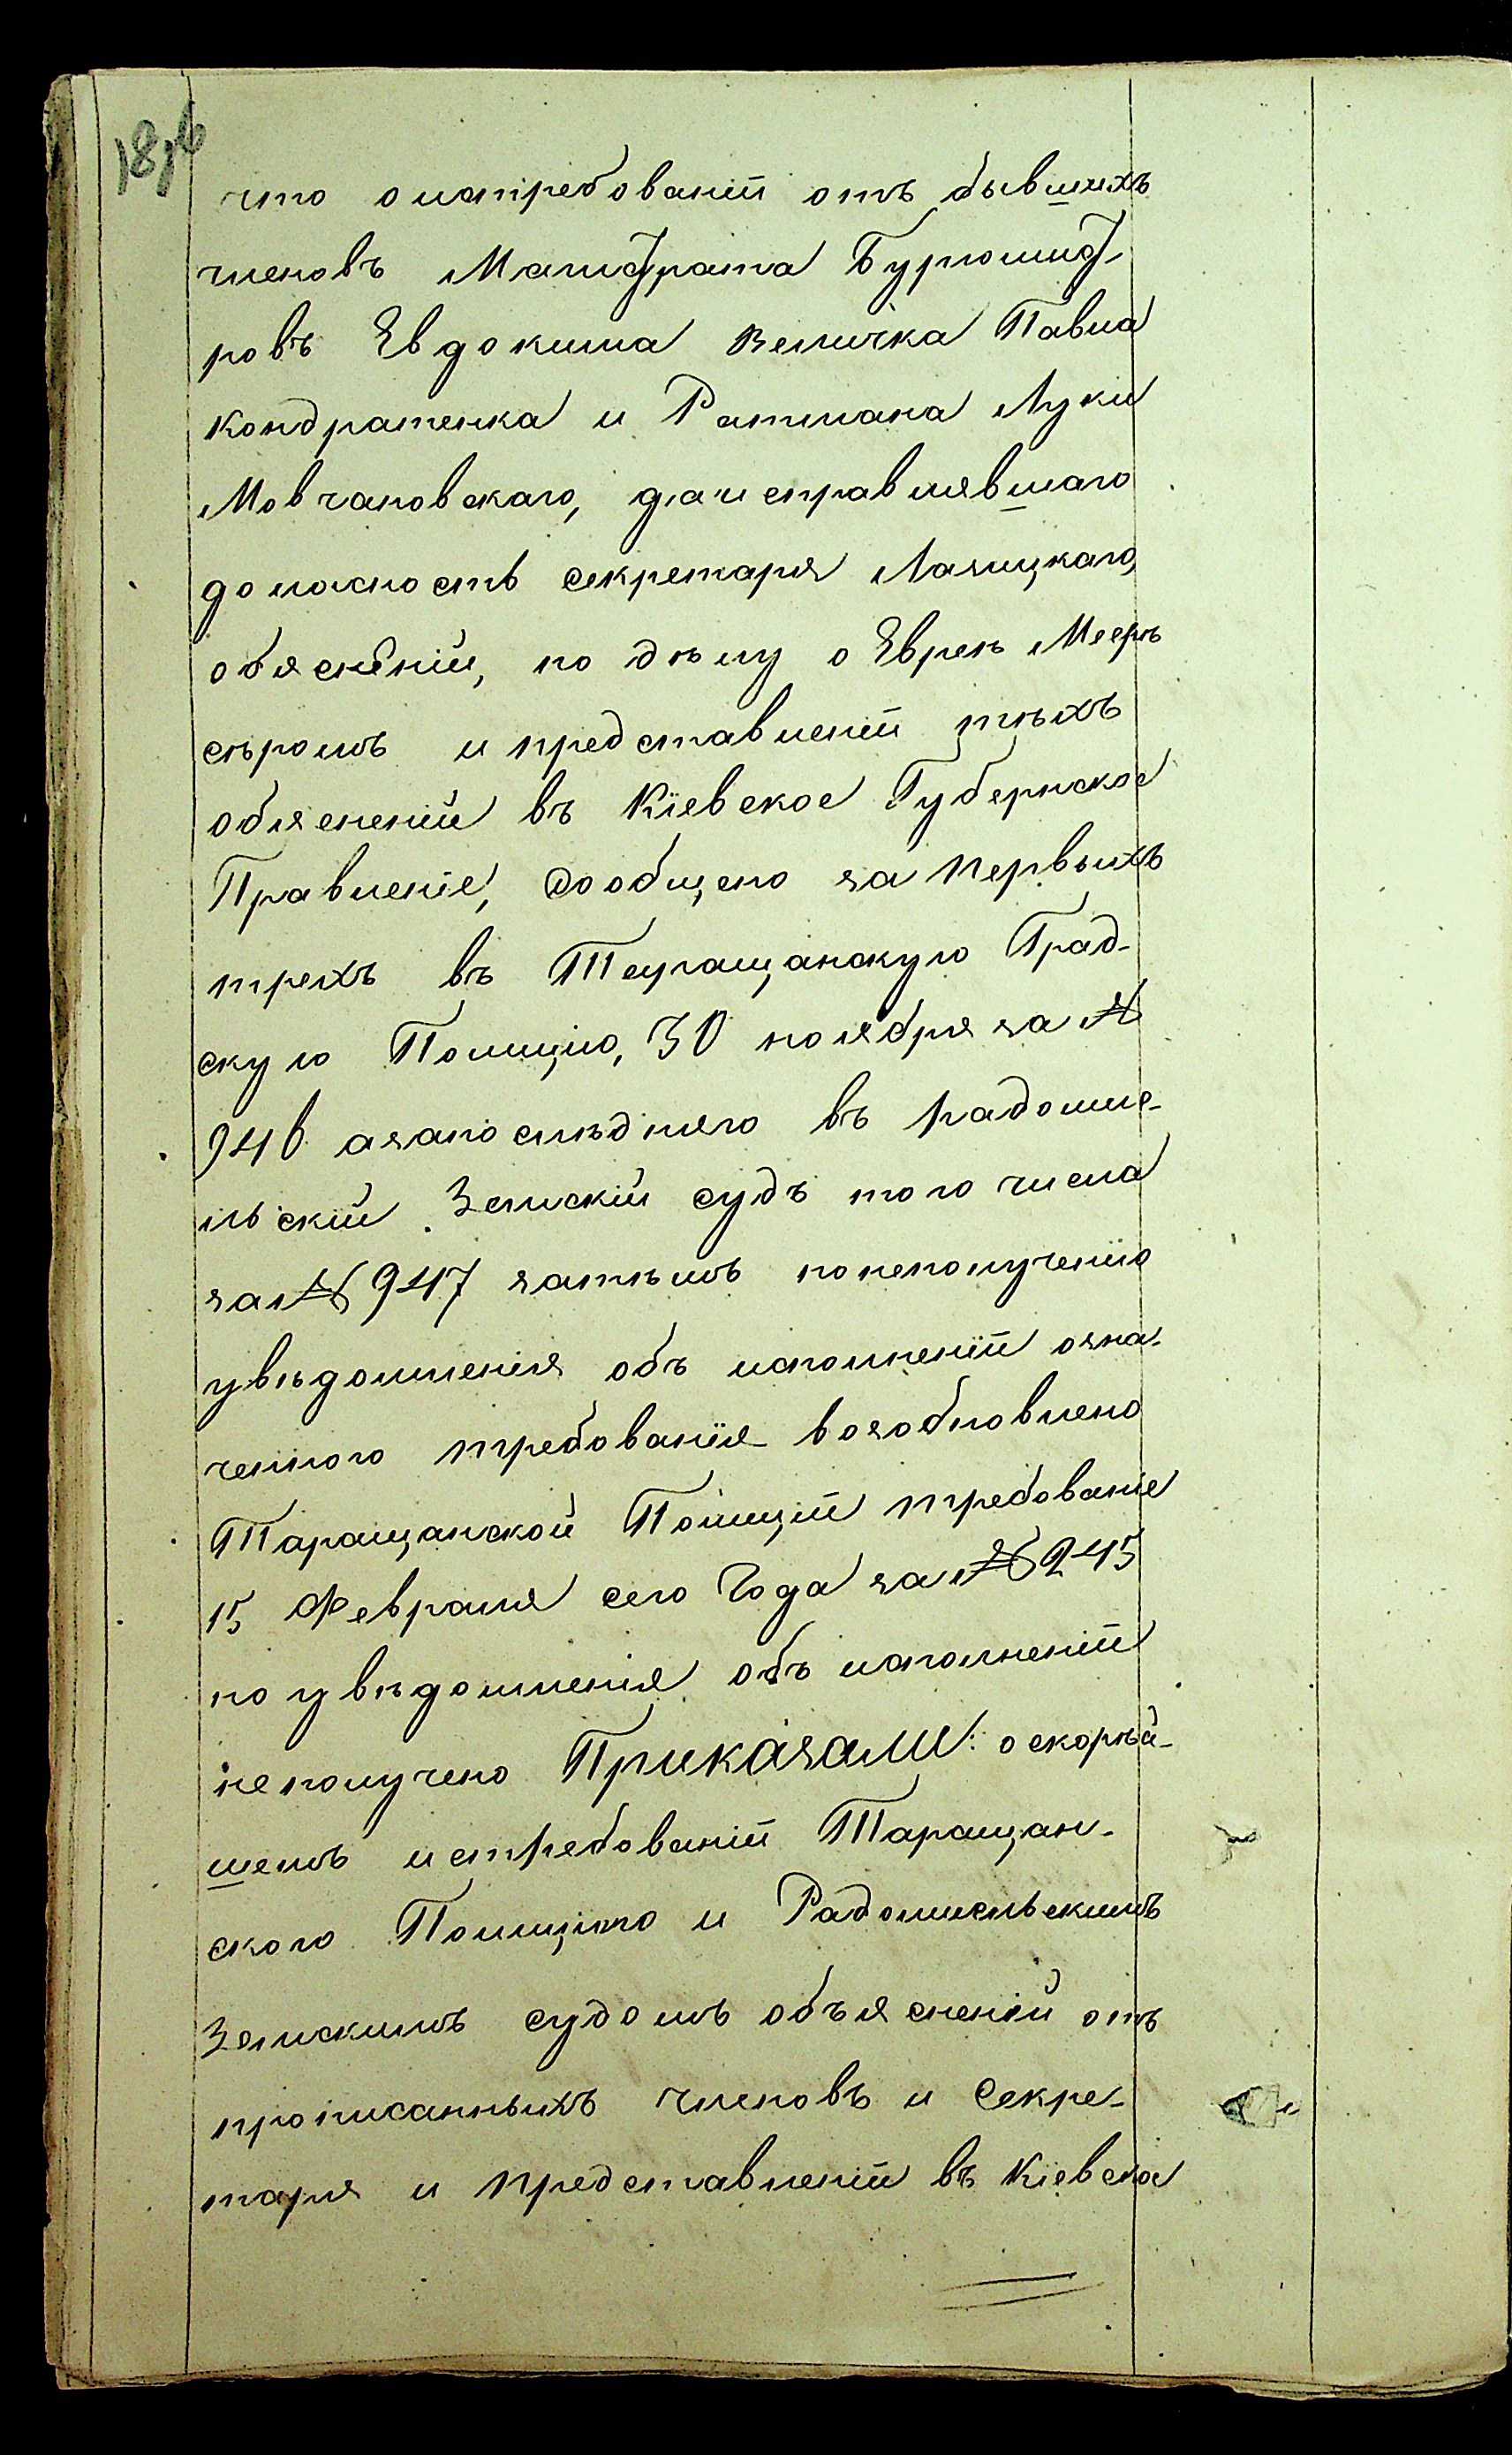 что о истребованіи отъ бывшихъ
членовъ Магистрата Бургомист-
ровъ Евдокима Величка Павла
Кондратенка и Ратмана Луки
Мовчановскаго, да и справлявшаго
должность секретаря
обясненій, по дѣлу о Евреѣ Меерѣ
и представленіи тѣхъ
обясненій въ Кіевское Губернское
Правленіе, сообщено за первыхъ
трехъ въ Таращанскую Град-
скую Полицію, 30 ноября за №
946 азапослѣдняго въ радомы-
льскій Земскій судъ того числа
за № 947 затѣмъ понеполученію
увѣдомленія объ исполненіи озна-
ченного требованія возобновлено
Таращанской Полиціи требованіе
15 Февраля сего Года за № 245
но увѣдомленія объ исполненіи
неполучено Приказали: о скорѣй-
шемъ истребованіи Таращан-
ского Полиціею и Радомысльскимъ
Земскимъ судомъ объясненій отъ
прописанныхъ членовъ и Секре-
таря и представленіи въ Кіевское